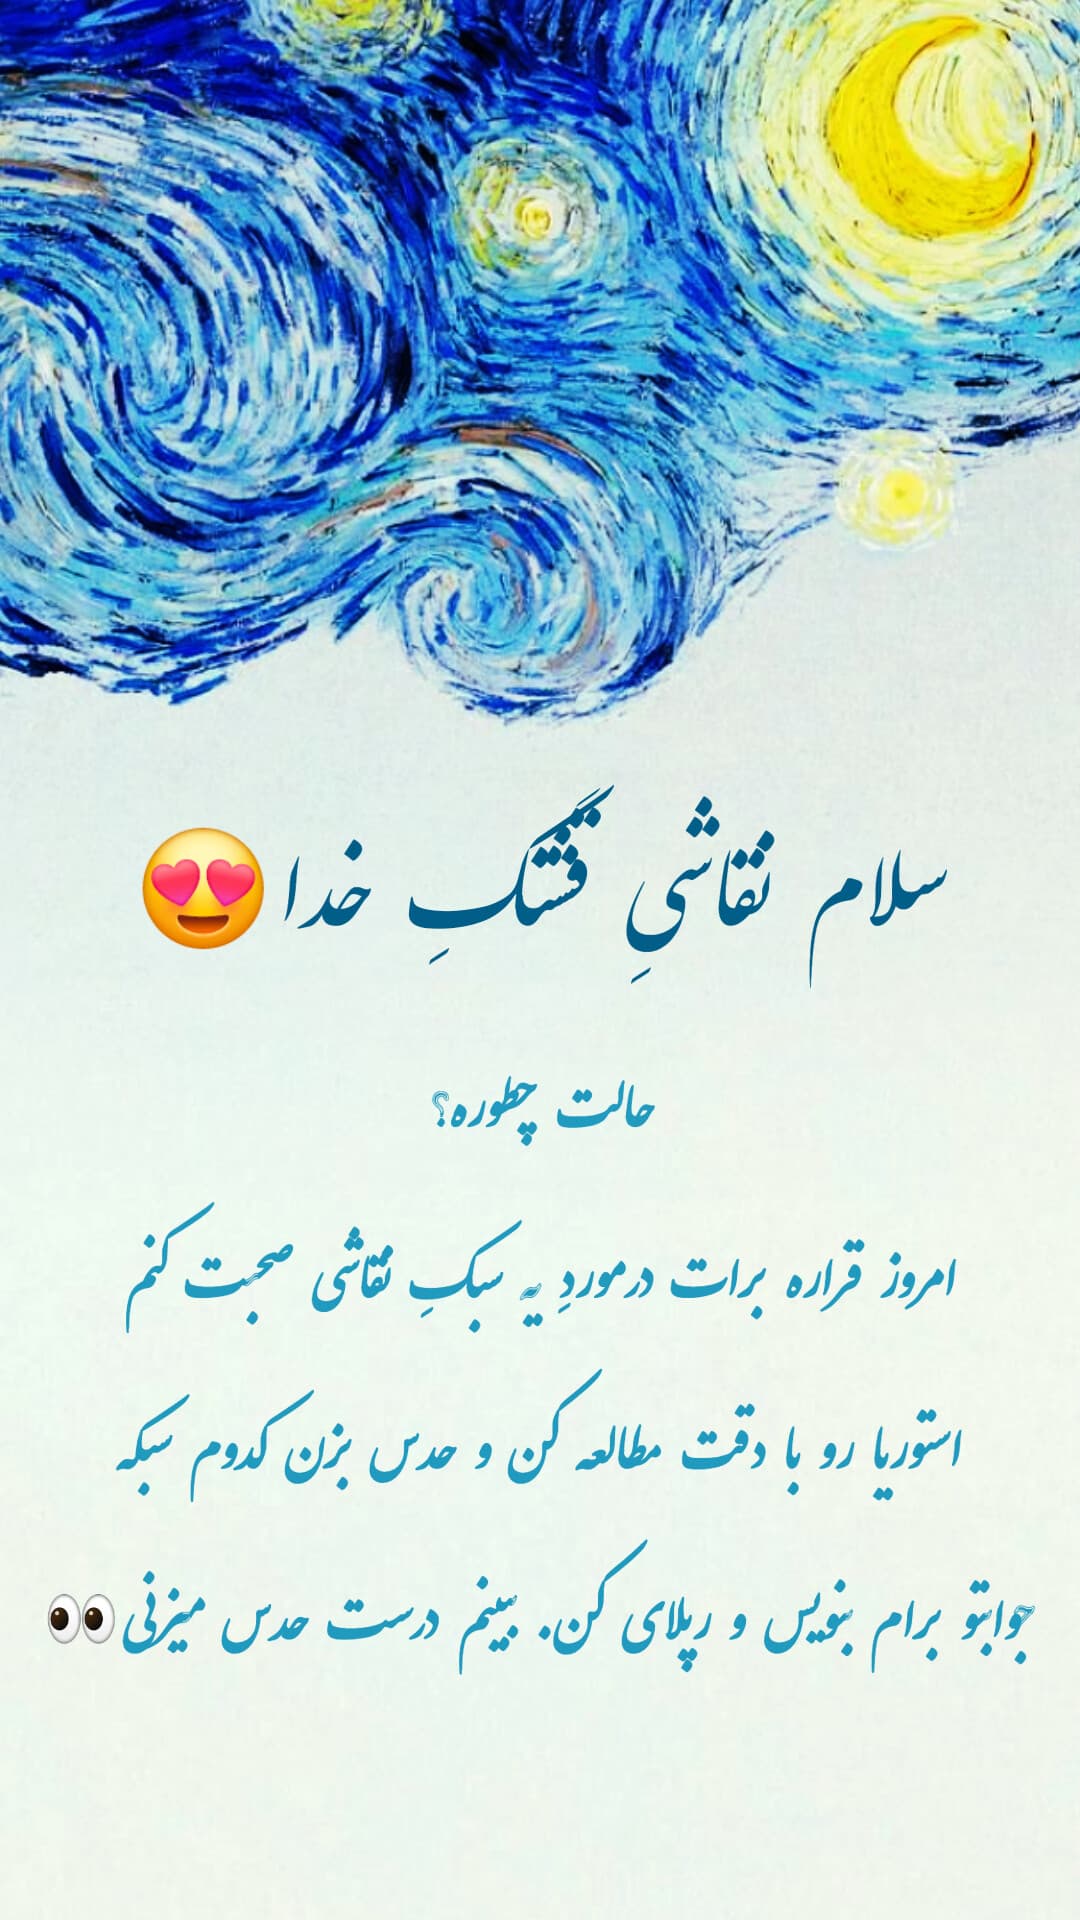 سلام نقاشیِ قشنگِ خدا😍
حالت چطوره؟
امروز قراره برات درموردِ یه سبکِ نقاشی صحبت کنم
استوریا رو با دقت مطالعه کن و حدس بزن کدوم سبکه
جوابتو برام بنویس و ریپلای کن. ببینم درست حدس میزنی👀